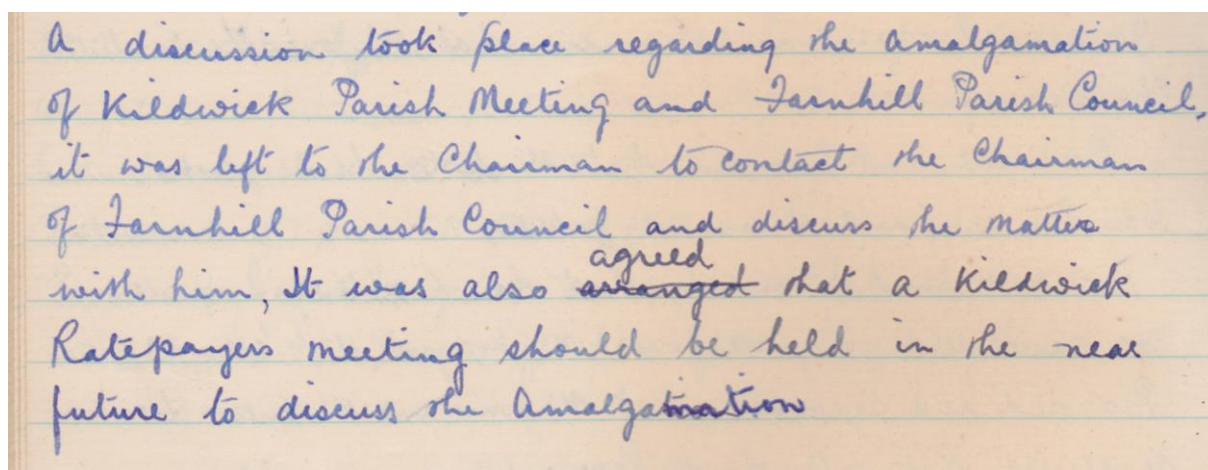 A discussion took place regarding the Amalgamation
of Kildwick Parish Meeting and Farnhill Parish Council,
it was left to the Chairman to contact the Chairman
of Farnhill Parish Council and discuss the matter
agreed
with him, It was also arranged that a Kildwick
Ratepayers meeting should be held in the near
future to discuss the Amalgamation